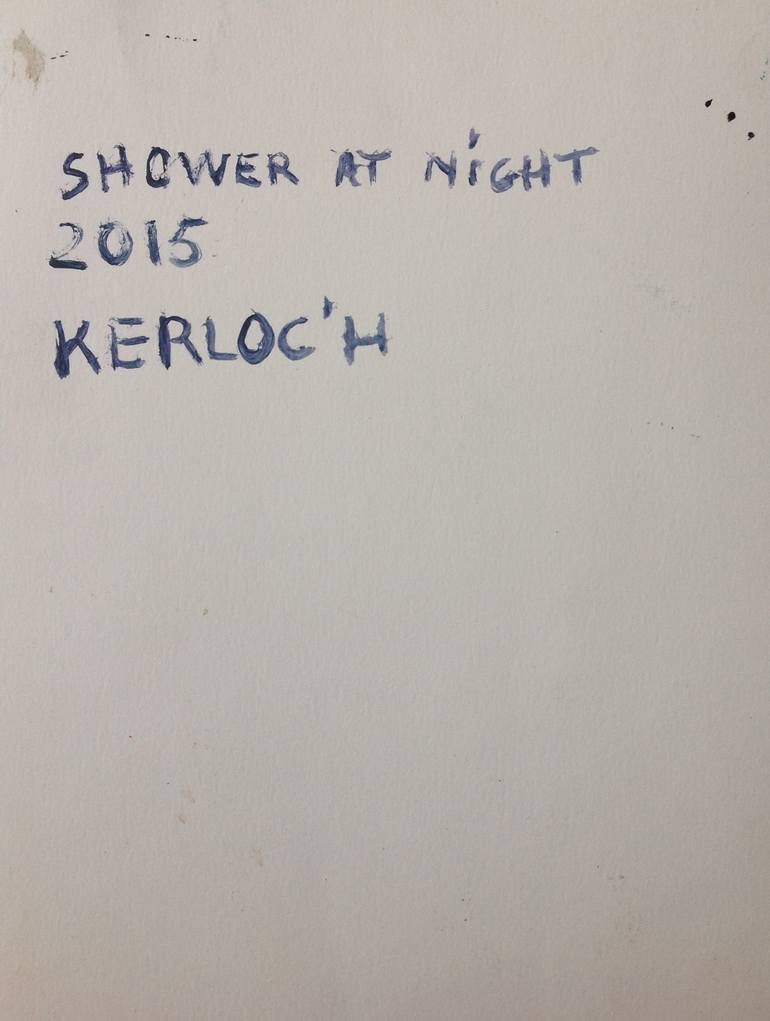 SHOWER AT NiGHT
2015
KERLOC'H